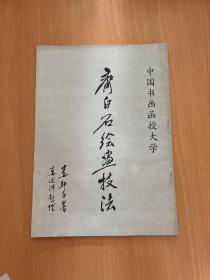 中国书画函授大学
齐白石绘画技法
娄师白著